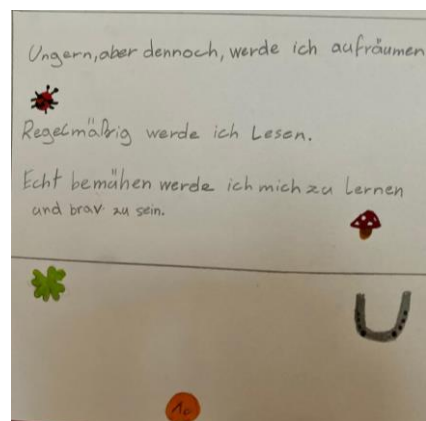 Ungern, aber dennoch, werde ich aufräumen
Regelmäßig werde ich Lesen.
Echt bemühen werde ich mich zu Lernen
und brav zu sein.
1c